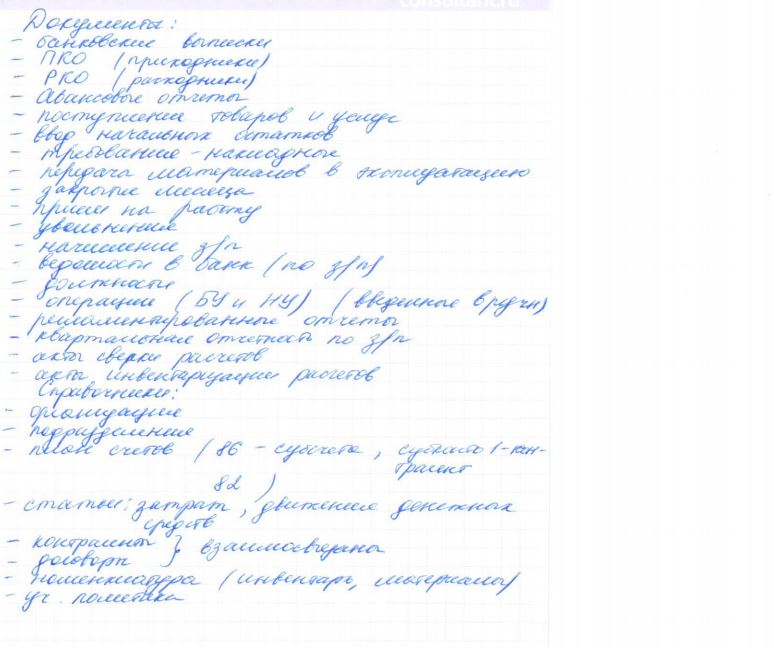 consultant.ru
Документы:
- банковские выписки
- ПКО (приходники)
- РКО (расходники)
- Авансовые отчеты
- поступление товаров и услуг
- ввод начальных остатков
- требование-накладные
- передача материалов в эксплуатацию
- закрытие месяца
- прием на работу
- увольнения
- начисление з/п
- ведомости в банк (по з/п)
- должности
- операции (БУ и НУ) (введенные вручн)
- регламентированные отчеты
- квартальная отчетность по з/п
- акты сверки расчетов
- акты инвентаризации расчетов
Справочники:
- организация
- подразделения
- план счетов (86 - субсчета, субконто 1-кон-
трагент
82 )
- статьи: затрат, движения денежных
средств
- контрагенты } взаимосвязаны
- договоры
- номенклатура (инвентарь, материалы)
- уч. политика